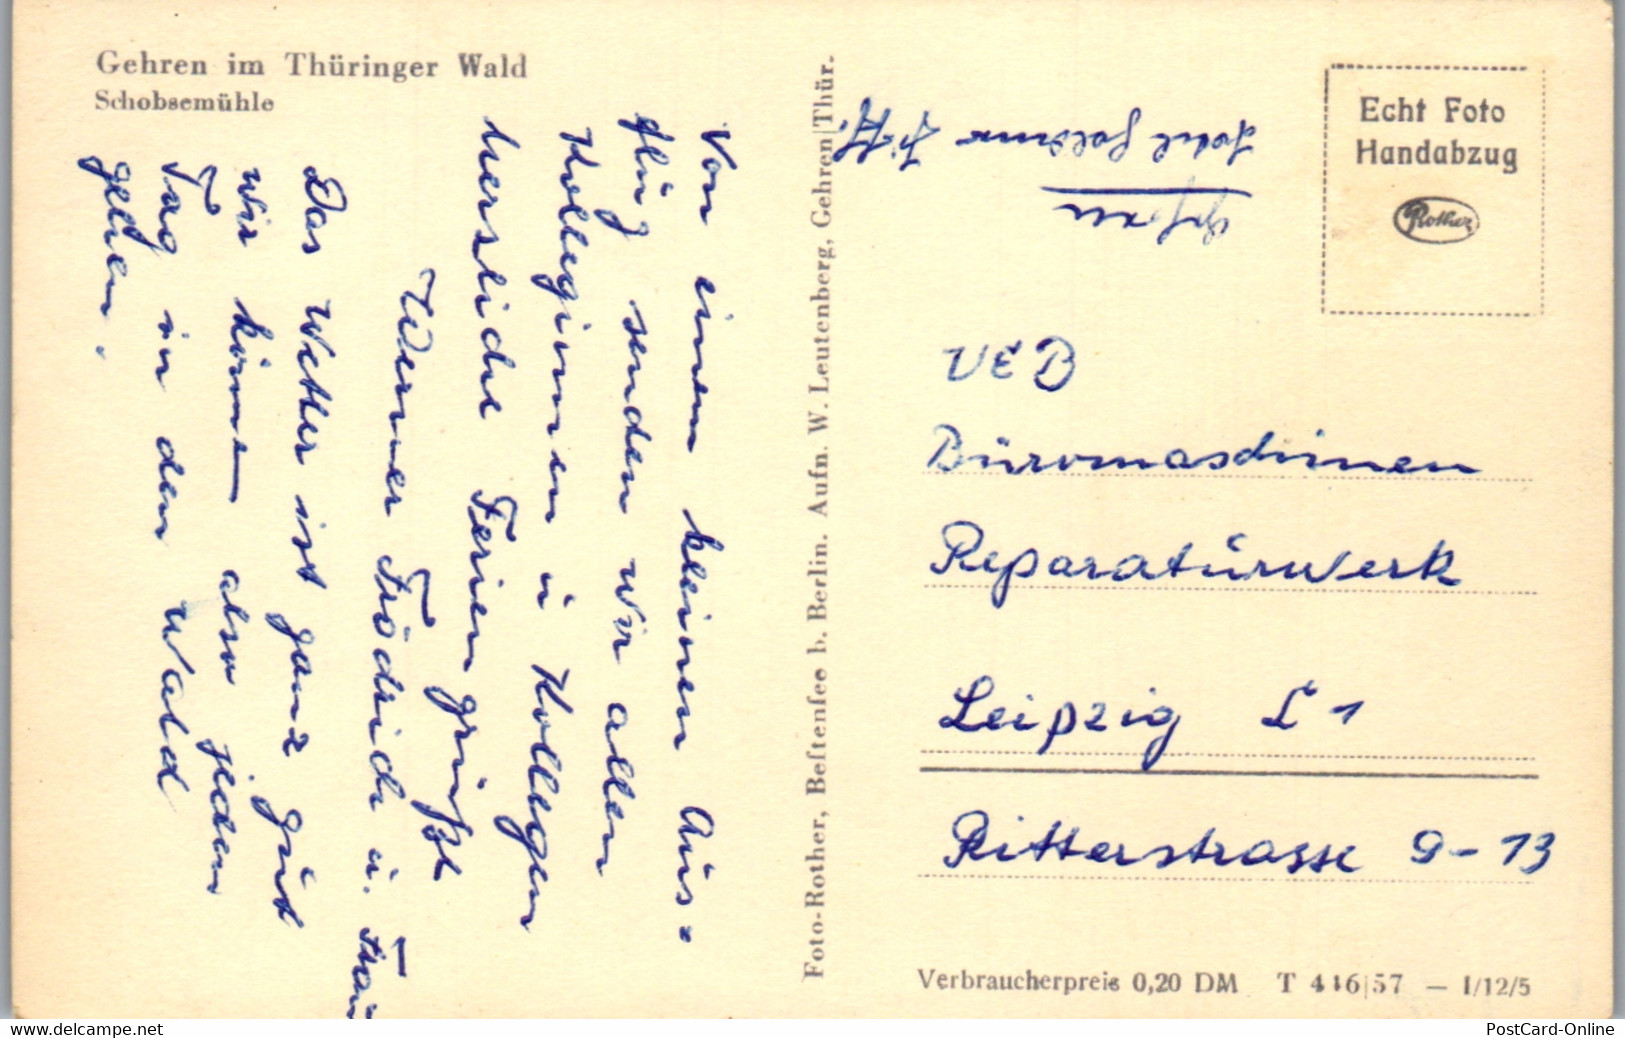 Gehren im Thüringer Wald
Schobsemühle
Von einem kleinen Aus=
flug senden wir allen
Kolleginnen u Kollegen
herzliche Feriengrüße
Werner Frödrich u. Frau
Das Wetter ist ganz gut
wir können also jeden
Tag in den Wald
gehen.
Foto-Rother, Bestensee b. Berlin. Aufn. W. Leutenberg, Gehren/Thür.
Echt Foto
Handabzug
Rother
VEB
Büromaschinen
Reparaturwerk
Leipzig C 1
Ritterstrasse 9-13
Verbraucherpreis 0,20 DM T 446/57 — 1/12/5
www.delcampe.net
PostCard-Online